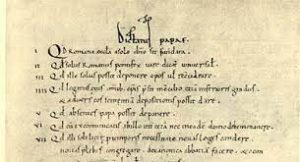 Dictatus papae.
I Qd romana eccla a solo dno sit fundata.
II Qd solus romanus pontifex iure dicat universalis.
III Qd ille solus possit deponere epos ul reconciliare.
IIII Qd legatus eius omib; epis presit in concilio etia inferioris gradus
& adversus eos sententia depositionis possit dare.
V Qd absentes papa possit deponere.
VI Qd cu excommunicatis ab illo int cetera nec in eade domo debemus manere.
VII Qd illi soli licet p temporis necessitate novas leges condere
novas plebes congregare, de canonica abbatia facere. & econtra